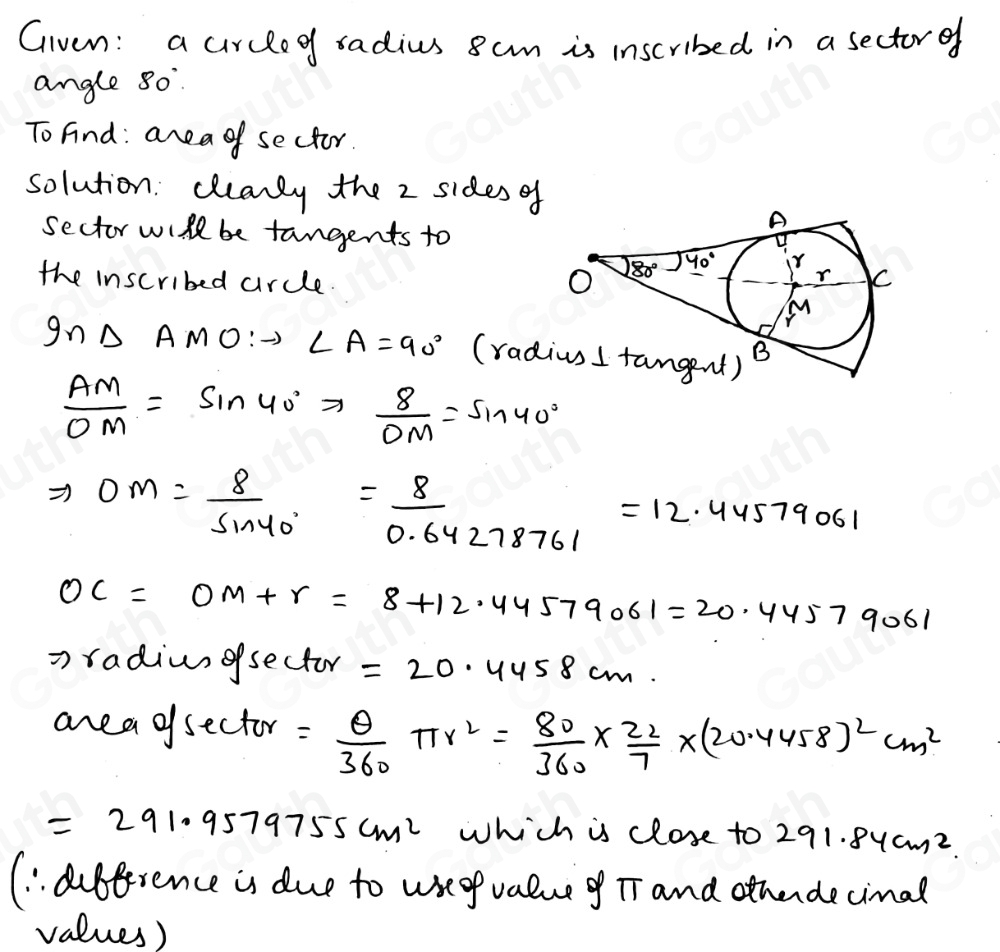 Given: a circle of radius 8cm is inscribed in a sector of
angle 80°.
To find: area of sector.
Solution: clearly the 2 sides of
sector will be tangents to
the inscribed circle.
A
80° 40° r r C
O
M
r
B
In Δ AMO:→ ∠A = 90° (radius ⊥ tangent)
AM/OM = Sin 40° ⇒ 8/OM = Sin 40°
⇒ OM = 8/Sin40° = 8/0.64278761 = 12.44579061
OC = OM + r = 8+12.44579061 = 20.44579061
⇒ radius of sector = 20.4458 cm.
area of sector = θ/360 πr² = 80/360 × 22/7 × (20.4458)² cm²
= 291.9579755 cm² which is close to 291.84 cm².
(∵ difference is due to use of value of π and other decimal
values)
Gauth